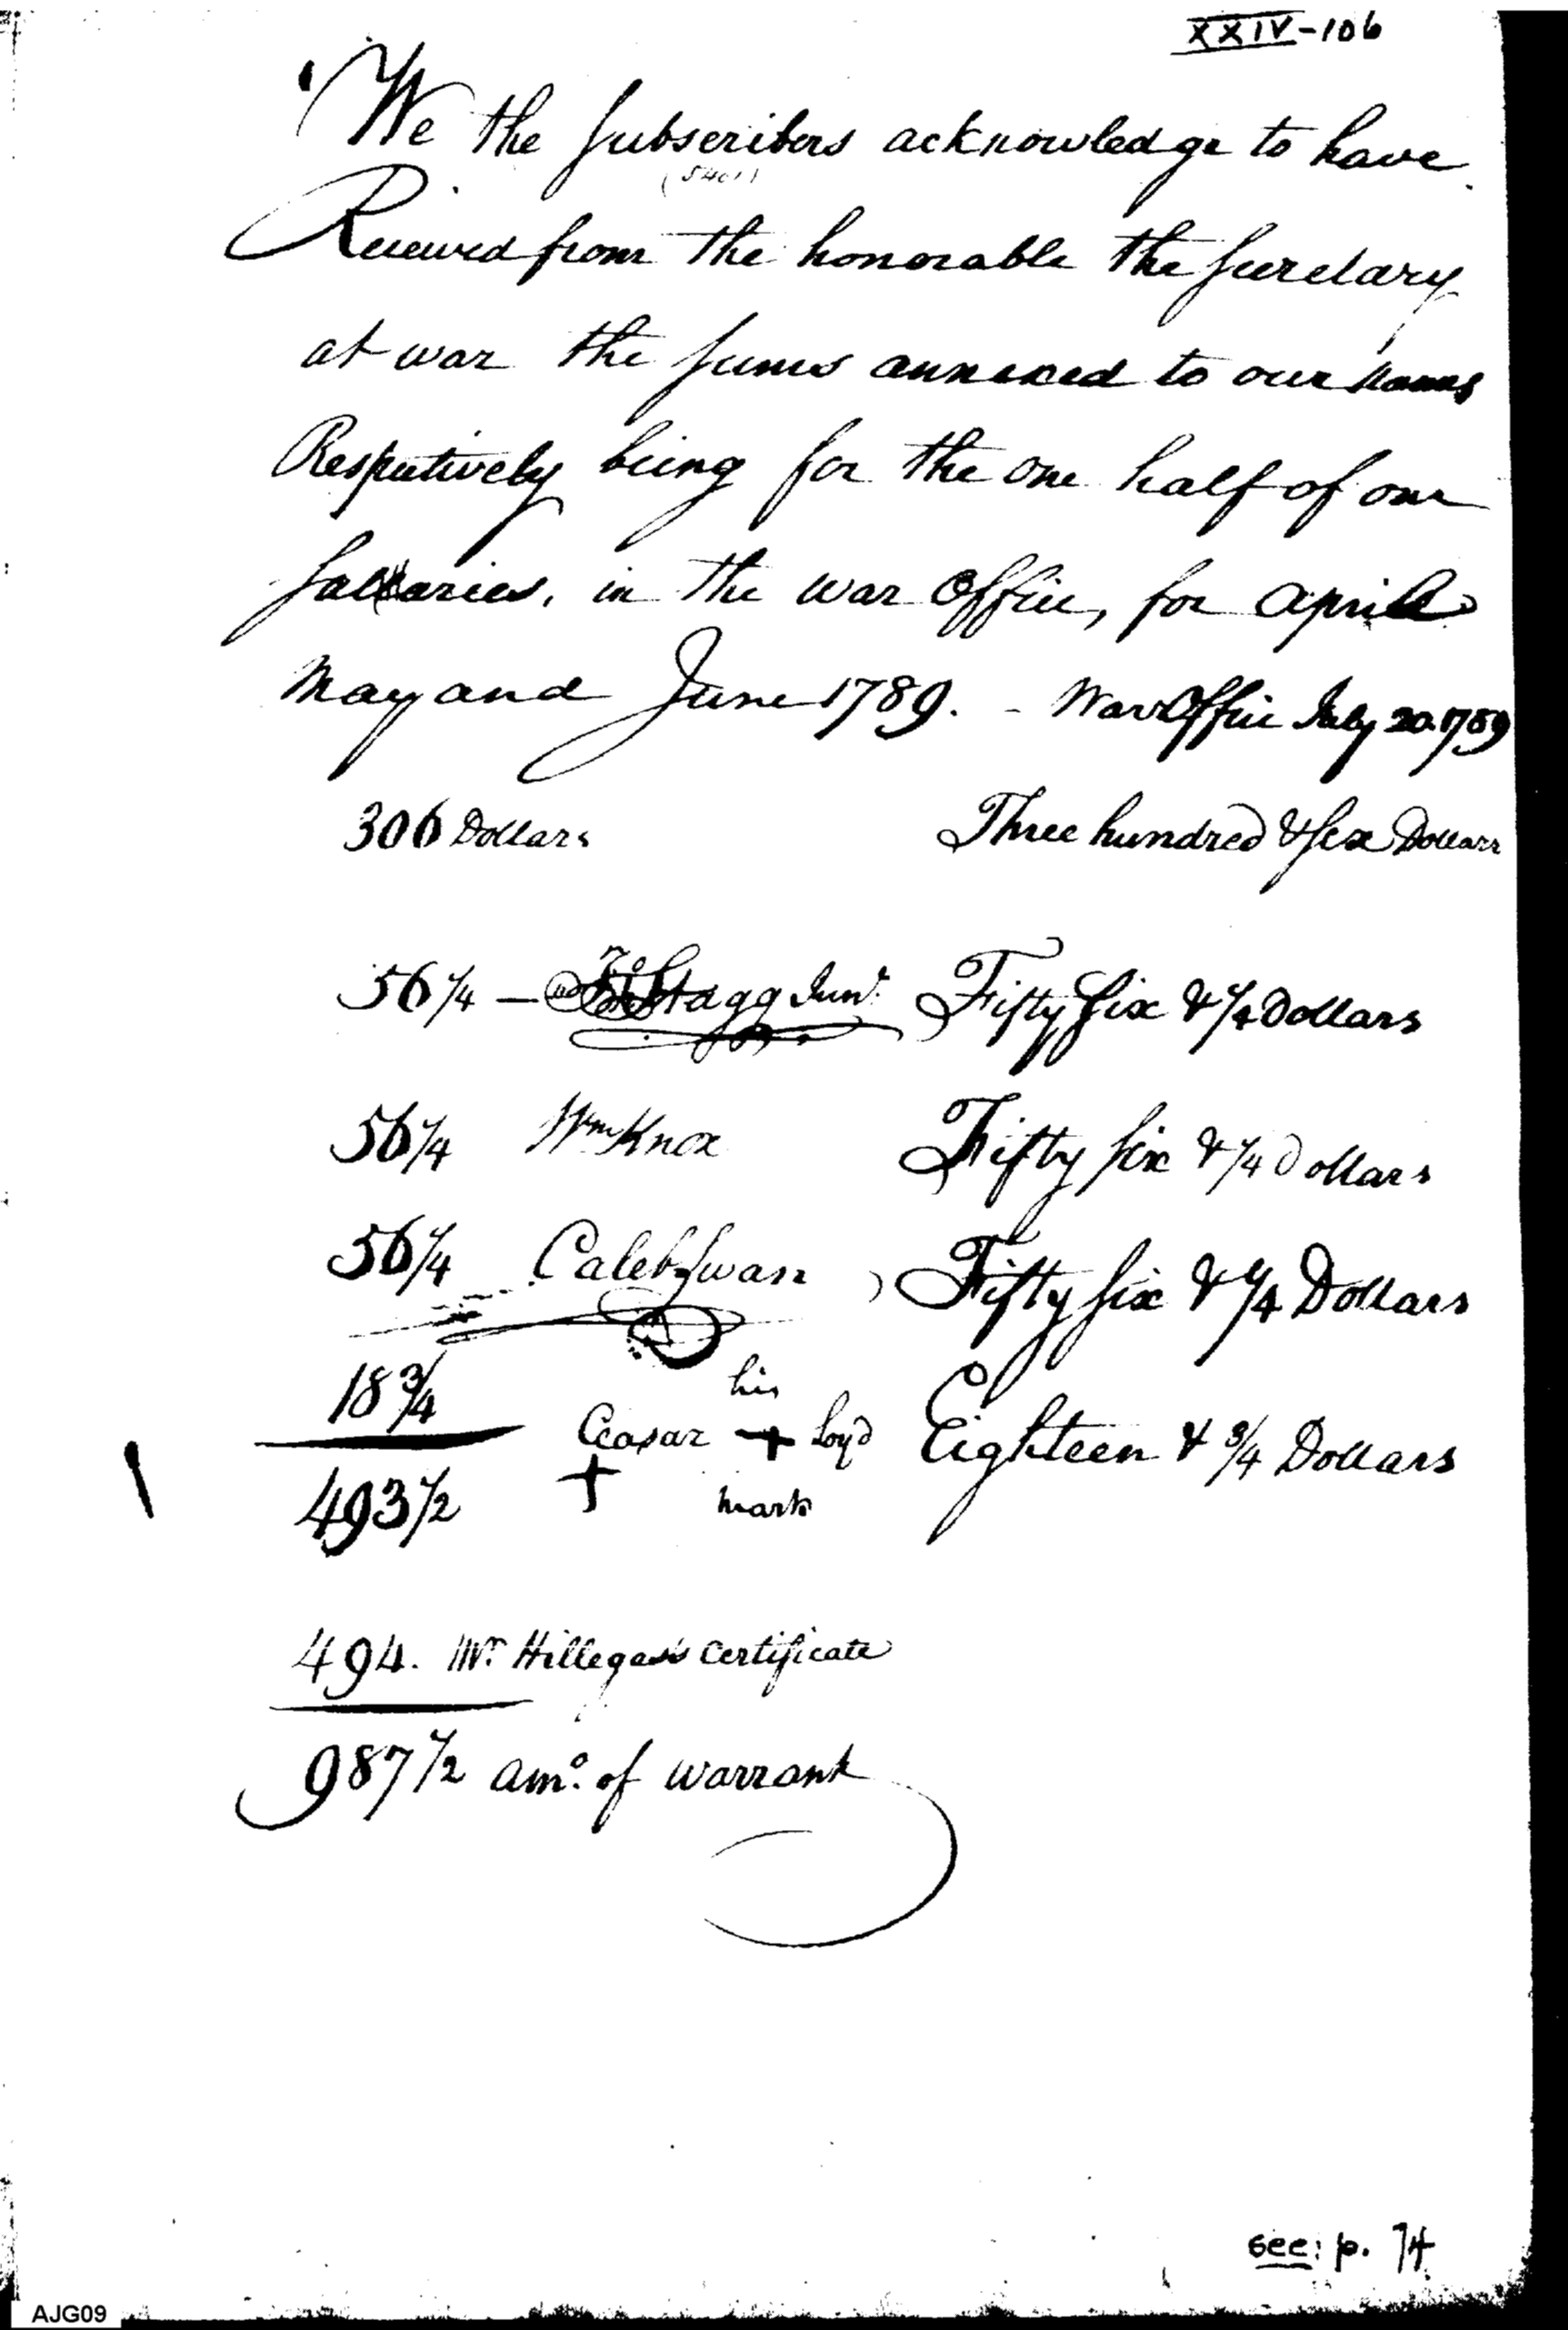 XXIV-106
We the Subscribers acknowledge to have
(5401)
Received from the honorable the Secretary
at war the Sums annexed to our Names
Respectively being for the one half of our
Sallaries, in the war Office, for April
May and June 1789. - War Office July 20. 1789
306 Dollars Three hundred & Six Dollars
56 1/4 — Stagg Junr. Fifty Six & 1/4 Dollars
56 1/4 Wm Knox Fifty Six & 1/4 Dollars
56 1/4 Caleb Swan Fifty Six & 1/4 Dollars
18 3/4 his
Ceasar + Loyd Eighteen & 3/4 Dollars
493 1/2 + mark
494. Mr. Hillegass Certificate
987 1/2 amo. of warrant
see: p. 74
AJG09